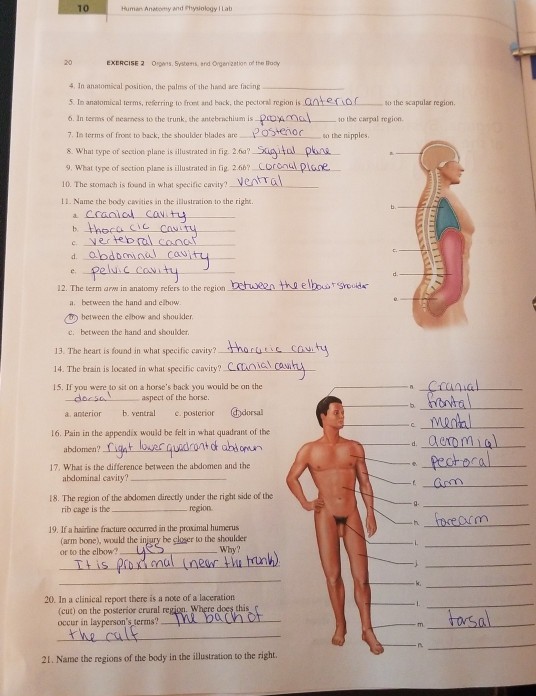 10 Human Anatomy and Physiology I Lab
20 EXERCISE 2 Organs, Systems, and Organization of the Body
4. In anatomical position, the palms of the hand are facing
5. In anatomical terms, referring to front and back, the pectoral region is anterior to the scapular region.
6. In terms of nearness to the trunk, the antebrachium is proximal to the carpal region.
7. In terms of front to back, the shoulder blades are Posterior to the nipples.
8. What type of section plane is illustrated in fig. 2.6a? Sagital plane
9. What type of section plane is illustrated in fig. 2.6b? Coronal plane
10. The stomach is found in what specific cavity? Ventral
11. Name the body cavities in the illustration to the right.
a. cranial cavity
b. thoracic cavity
c. vertebral canal
d. abdominal cavity
e. pelvic cavity
a.
b.
c.
d.
e.
12. The term arm in anatomy refers to the region between the elbow + shoulder
a. between the hand and elbow.
b. between the elbow and shoulder.
c. between the hand and shoulder.
13. The heart is found in what specific cavity? thoracic cavity
14. The brain is located in what specific cavity? Cranial cavity
15. If you were to sit on a horse's back you would be on the
dorsal aspect of the horse.
a. anterior b. ventral c. posterior d. dorsal
16. Pain in the appendix would be felt in what quadrant of the
abdomen? right lower quadrant of abdomen
17. What is the difference between the abdomen and the
abdominal cavity?
18. The region of the abdomen directly under the right side of the
rib cage is the region.
19. If a hairline fracture occurred in the proximal humerus
(arm bone), would the injury be closer to the shoulder
or to the elbow? yes Why?
It is proximal (near the trunk)
20. In a clinical report there is a note of a laceration
(cut) on the posterior crural region. Where does this
occur in layperson's terms? The back of
the calf
21. Name the regions of the body in the illustration to the right.
a. Cranial
b. frontal
c. mental
d. acromial
e. pectoral
f. arm
g.
h. forearm
i.
j.
k.
l.
m. tarsal
n.